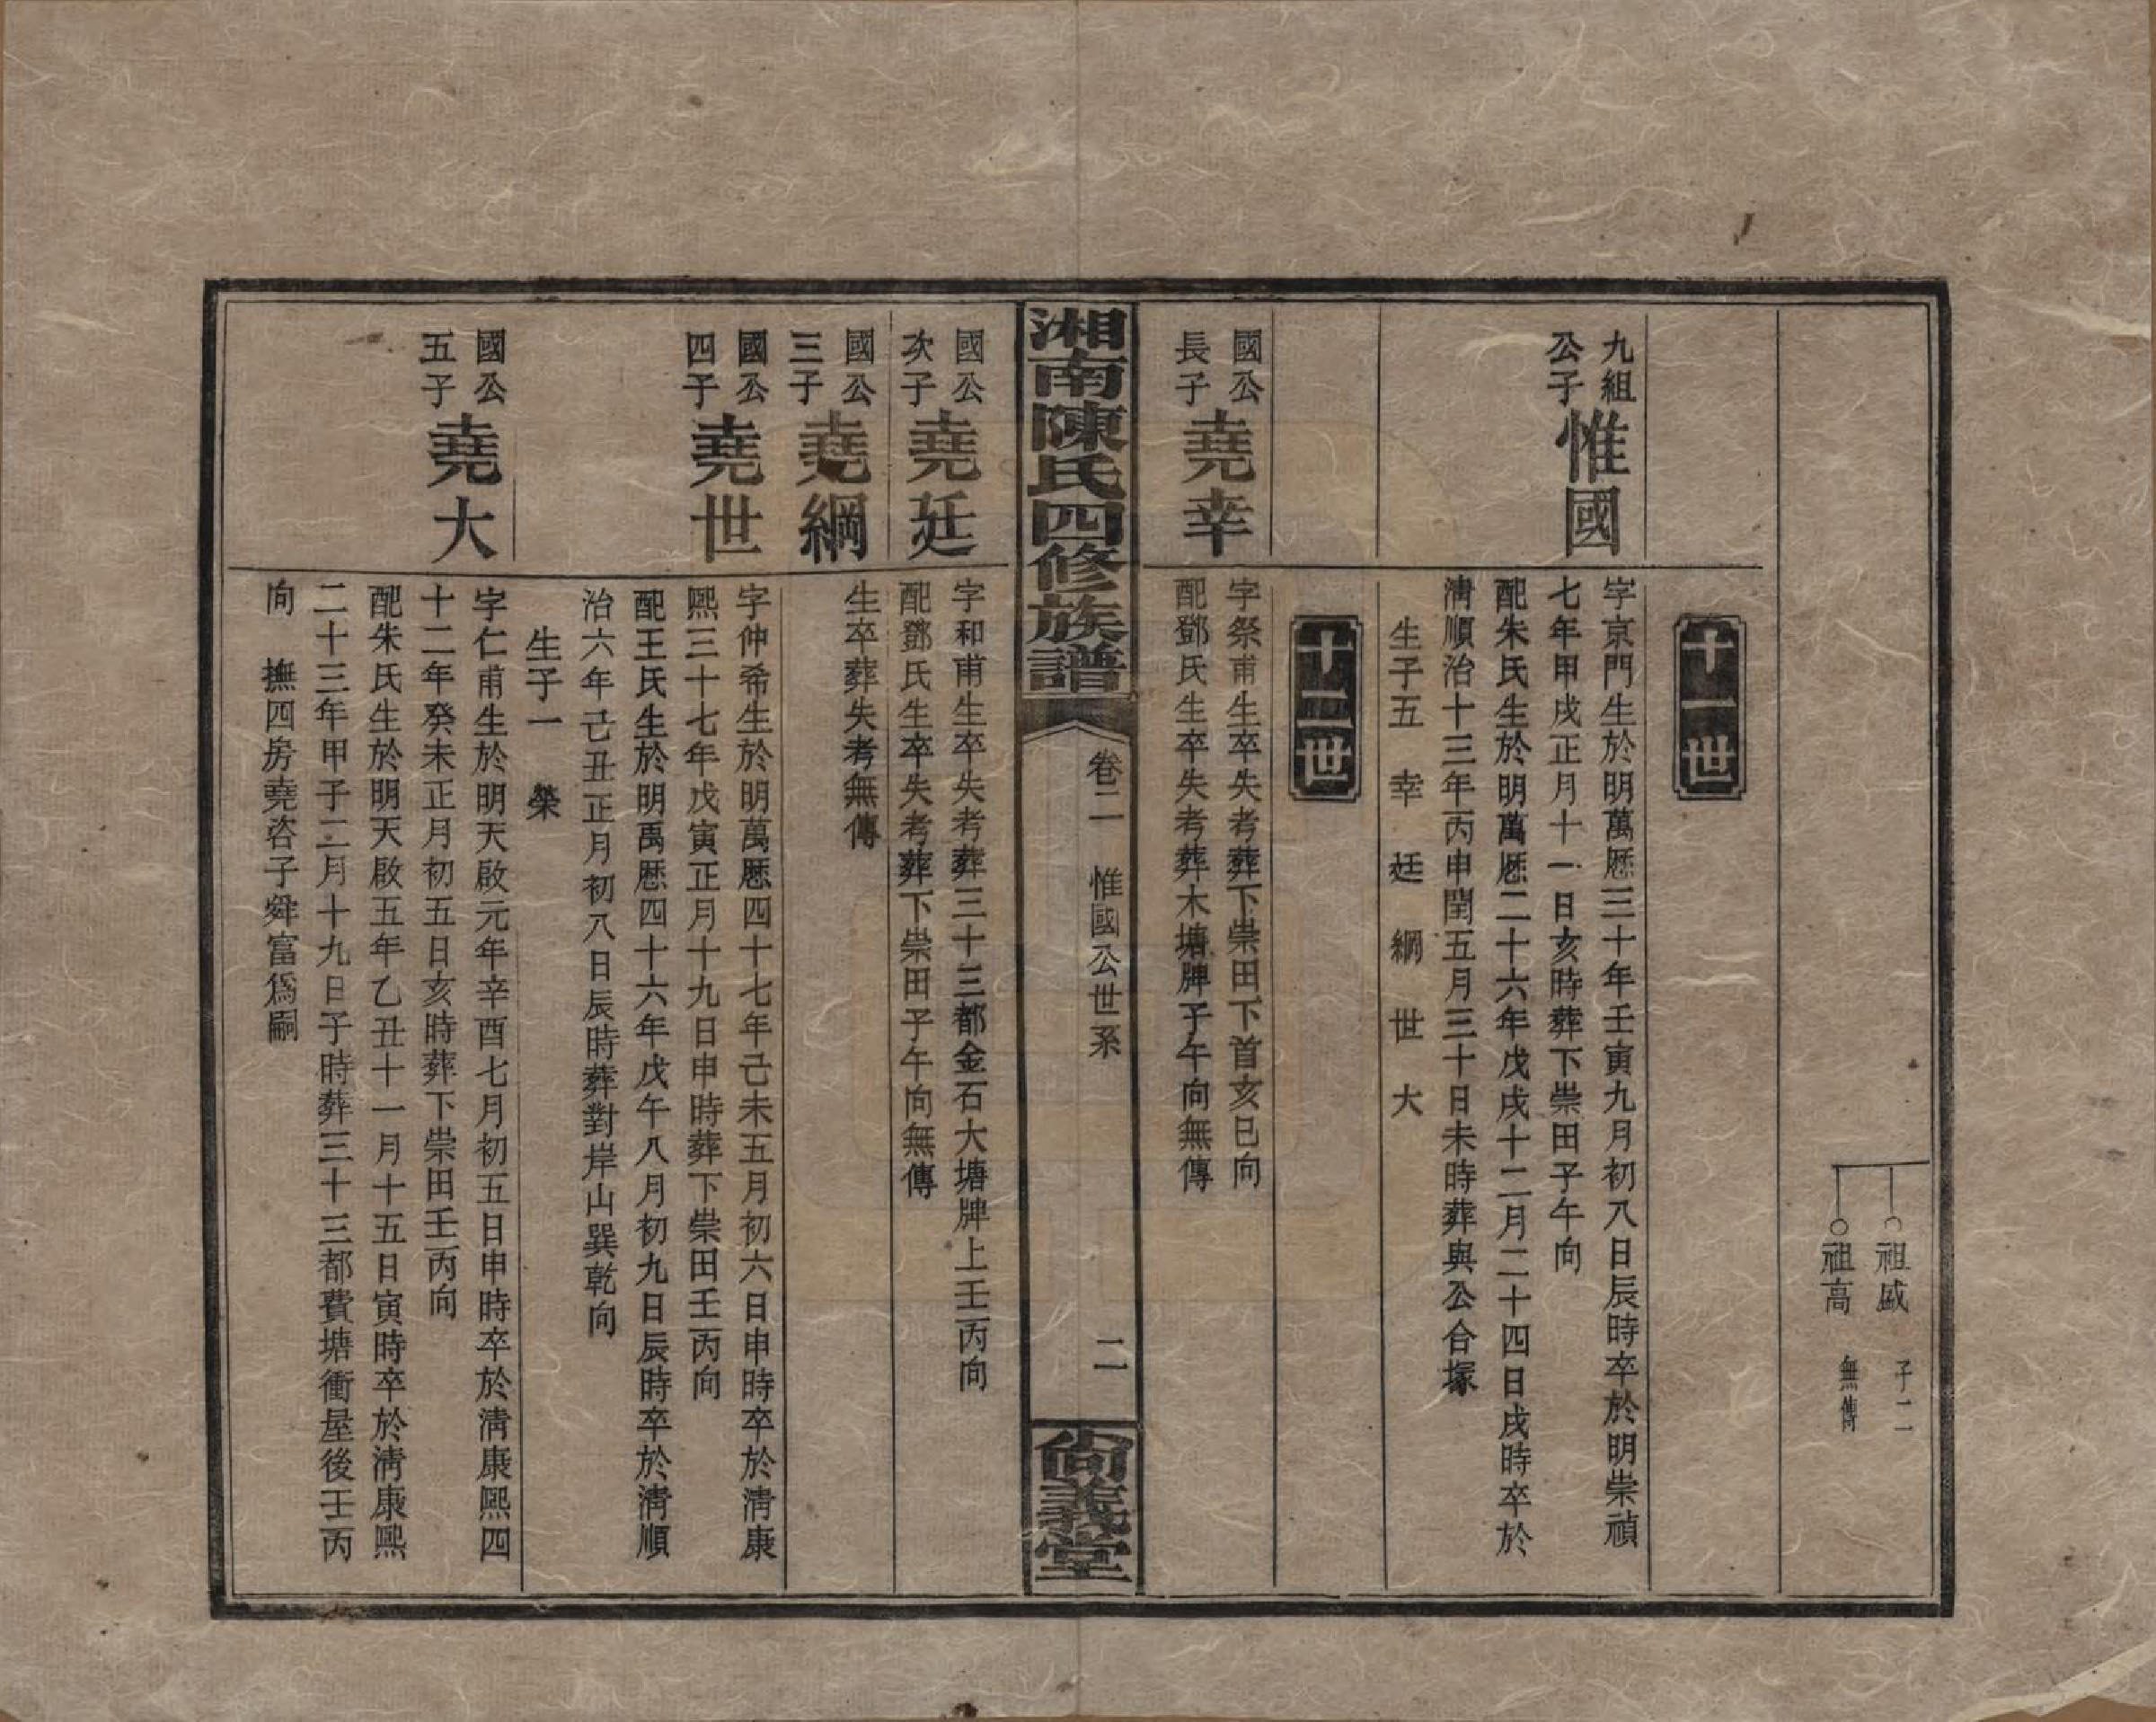 祖盛　子二
祖高　無傳
十一世
九組
公子
惟國
字京門生於明萬厯三十年壬寅九月初八日辰時卒於明崇禎
七年甲戌正月十一日亥時葬下崇田子午向
配朱氏生於明萬厯二十六年戊戌十二月二十四日戌時卒於
淸順治十三年丙申閏五月三十日未時葬與公合塚
生子五　幸　廷　綱　世　大
十二世
國公
長子
堯幸
字祭甫生卒失考葬下崇田下首亥巳向
配鄧氏生卒失考葬木塘牌子午向無傳
湘南陳氏四修族譜
卷二　惟國公世系
二
尙義堂
國公
次子
堯廷
字和甫生卒失考葬三十三都金石大塘牌上壬丙向
配鄧氏生卒失考葬下崇田子午向無傳
國公
三子
堯綱
生卒葬失考無傳
國公
四子
堯世
字仲希生於明萬厯四十七年己未五月初六日申時卒於淸康
熙三十七年戊寅正月十九日申時葬下崇田壬丙向
配王氏生於明禹厯四十六年戊午八月初九日辰時卒於淸順
治六年己丑正月初八日辰時葬對岸山巽乾向
生子一　榮
國公
五子
堯大
字仁甫生於明天啟元年辛酉七月初五日申時卒於淸康熙四
十二年癸未正月初五日亥時葬下崇田壬丙向
配朱氏生於明天啟五年乙丑十一月十五日寅時卒於淸康熙
二十三年甲子二月十九日子時葬三十三都費塘衝屋後壬丙
向　撫四房堯咨子舜富爲嗣